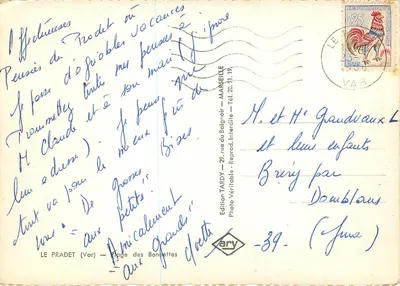 Affectueuses
Pensées du Pradet où
je passe d'agréables vacances
Transmettez toute mes pensées à
M Claude et à son mari (j'ignore
leur adresse). Je pense que
tout va pour le mieux près de
vous. De grosses Bises
aux petits.
Amicalement
aux grands.
Yvette
LE PRADET (Var) - Plage des Bonnettes
Edition TARDY - 29, rue du Baignoir - MARSEILLE
Photo Véritable - Reprod. Interdite - Tél. 20.51.19
ary
LE PR
VAR
M. et Me Grandvaux L
et leurs enfants
Bréry par
Domblans
-39- (Jura)